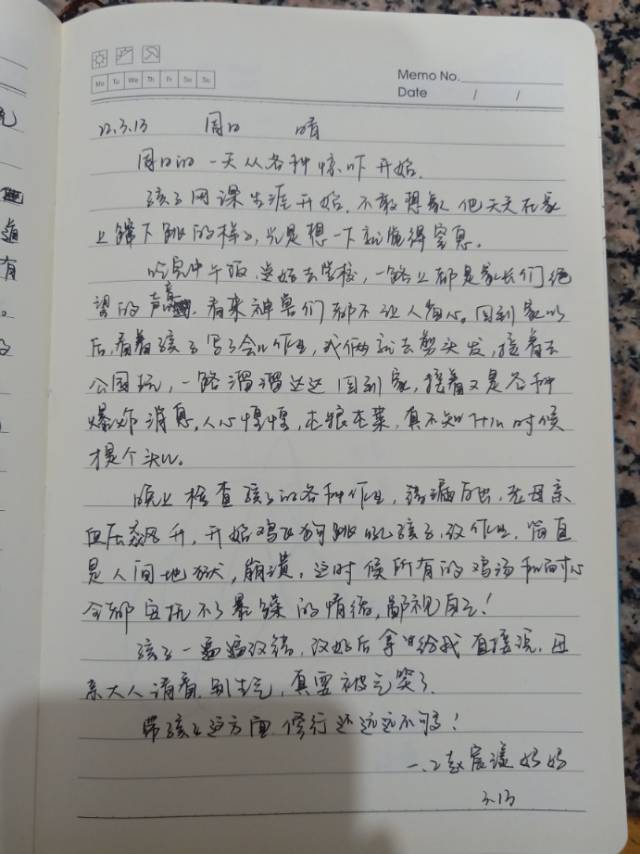 Mo Tu We Th Fr Sa Su
Memo No.
Date / /
22.3.13 周日 晴
周日的一天从各种惊吓开始.
孩子网课生涯开始.不敢想象他天天在家
上蹿下跳的样子,光是想一下就觉得窒息。
吃完中午饭,送娃去学校,一路上都是家长们绝
望的声音.看来神兽们都不让人省心。回到家以
后,看着孩子写了会儿作业,我俩就去剪头发,接着去
公园玩,一路溜溜达达回到家,接着又是各种
爆炸消息,人心惶惶,屯粮屯菜,真不知什么时候
才是个头儿。
晚上检查孩子的各种作业,错漏百出,老母亲
血压飙升,开始鸡飞狗跳吼孩子,改作业,简直
是人间地狱,崩溃,这时候所有的鸡汤和耐心
全都安抚不了暴躁的情绪,鄙视自己!
孩子一遍遍改错,改好后拿给我直接说,母
亲大人请看,别生气,真要被气笑了.
带孩子这方面修行还远远不够!
一.2赵宸漾妈妈
3.13